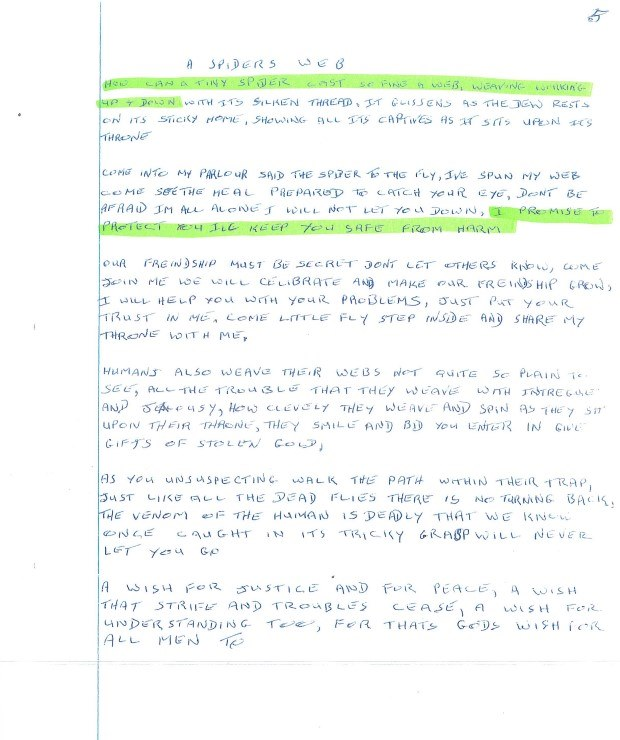 5
A SPIDERS WEB
HOW CAN A TINY SPIDER CAST SO FINE A WEB, WEAVING WORKING
UP & DOWN WITH ITS SILKEN THREAD, IT GLISSENS AS THE DEW RESTS
ON ITS STICKY HOME, SHOWING ALL ITS CAPTIVES AS IT SITS UPON ITS
THRONE
COME INTO MY PARLOUR SAID THE SPIDER TO THE FLY, IVE SPUN MY WEB
COME SEE THE MEAL PREPARED TO CATCH YOUR EYE, DONT BE
AFRAID IM ALL ALONE I WILL NOT LET YOU DOWN, I PROMISE TO
PROTECT YOU ILL KEEP YOU SAFE FROM HARM
OUR FREINDSHIP MUST BE SECRET DONT LET OTHERS KNOW, COME
JOIN ME WE WILL CELIBRATE AND MAKE OUR FREINDSHIP GROW,
I WILL HELP YOU WITH YOUR PROBLEMS, JUST PUT YOUR
TRUST IN ME. COME LITTLE FLY STEP INSIDE AND SHARE MY
THRONE WITH ME.
HUMANS ALSO WEAVE THEIR WEBS NOT QUITE SO PLAIN TO
SEE, ALL THE TROUBLE THAT THEY WEAVE WITH INTREGUE
AND JEALOUSY, HOW CLEVELY THEY WEAVE AND SPIN AS THEY SIT
UPON THEIR THRONE, THEY SMILE AND BID YOU ENTER IN GIVE
GIFTS OF STOLEN GOLD,
AS YOU UNSUSPECTING WALK THE PATH WITHIN THEIR TRAP,
JUST LIKE ALL THE DEAD FLIES THERE IS NO TURNING BACK,
THE VENOM OF THE HUMAN IS DEADLY THAT WE KNOW
ONCE CAUGHT IN ITS TRICKY GRASP WILL NEVER
LET YOU GO
A WISH FOR JUSTICE AND FOR PEACE, A WISH
THAT STRIFE AND TROUBLES CEASE, A WISH FOR
UNDERSTANDING TOO, FOR THATS GODS WISH FOR
ALL MEN TO